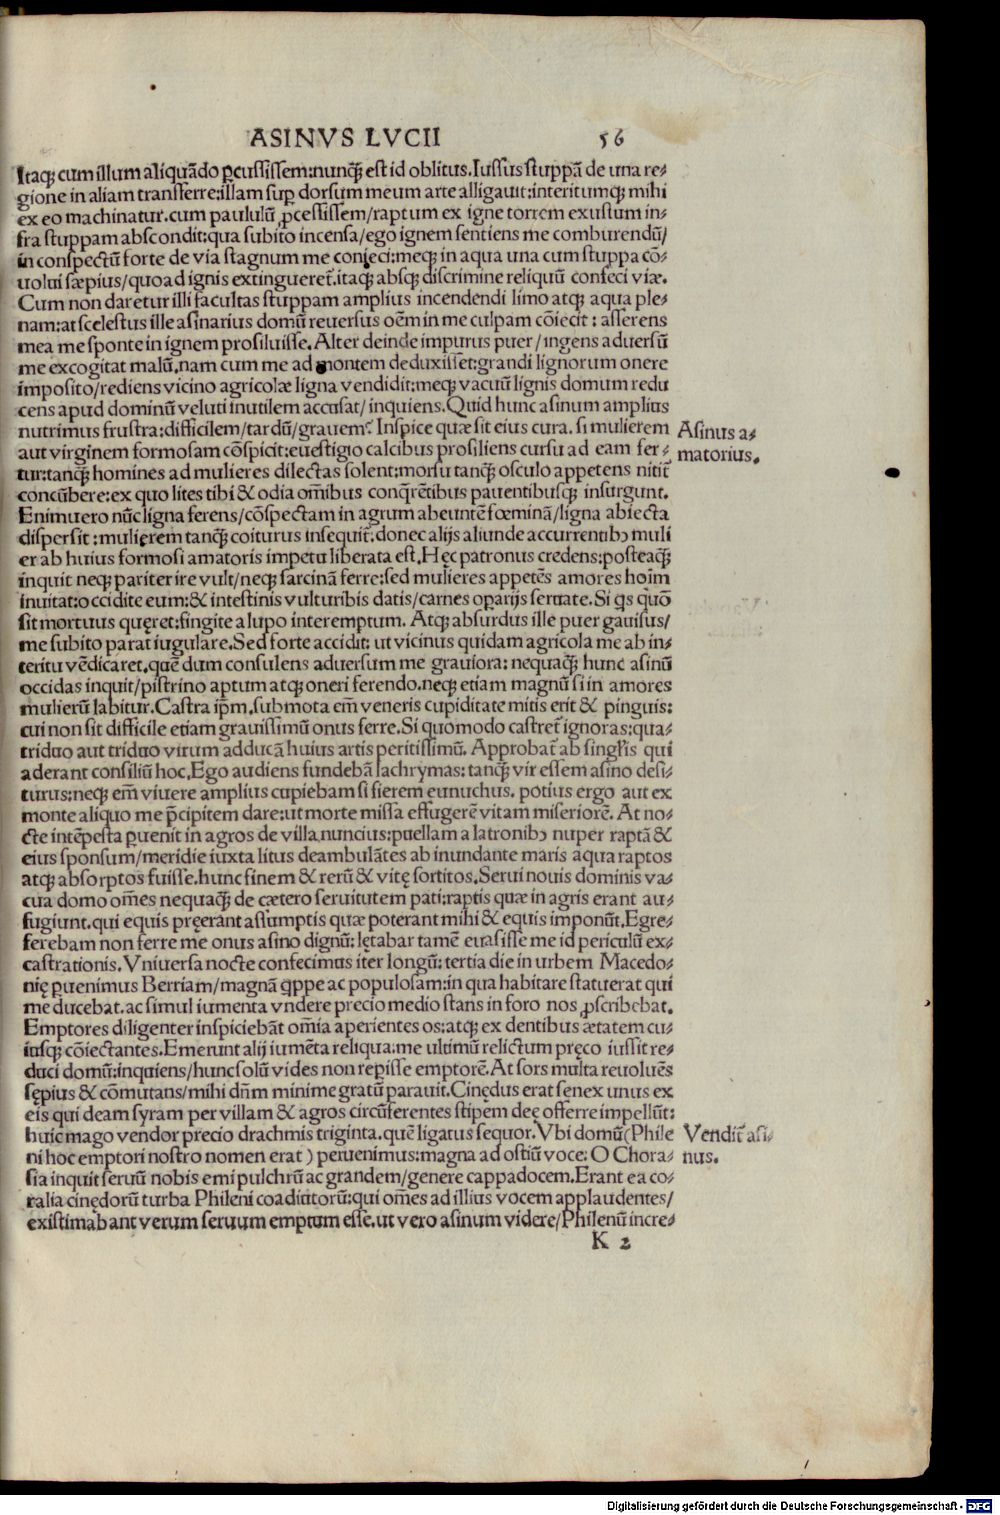 ASINVS LVCII 56
Itaqꝫ cum illum aliquãdo ꝑcussissem:nunqꝫ̃ est id oblitus.Iussus stuppã de una re⸗
gione in aliam transferre:illam suꝑ dorsum meum arte alligauit:interitumqꝫ mihi
ex eo machinatur.cum paululũ ꝓcessissem/raptum ex igne torrem exustum in⸗
fra stuppam abscondit:qua subito incensa/ego ignem sentiens me comburendũ/
in conspectũ forte de via stagnum me conieci:meqꝫ in aqua una cum stuppa cõ⸗
uolui sæpius/quoad ignis extingueret̃.itaqꝫ absqꝫ discrimine reliquũ confeci viæ.
Cum non daretur illi facultas stuppam amplius incendendi limo atqꝫ aqua ple⸗
nam:at scelestus ille asinarius domũ reuersus oẽm in me culpam cõiecit : asserens
mea me sponte in ignem prosiluisse.Alter deinde impurus puer/ingens aduersũ
me excogitat malũ.nam cum me ad montem deduxisset:grandi lignorum onere
imposito/rediens vicino agricolæ ligna vendidit:meqꝫ vacuũ lignis domum redu
cens apud dominũ veluti inutilem accusat/inquiens.Quid hunc asinum amplius
nutrimus frustra:difficilem/tardũ/grauem? Inspice quæ sit eius cura. si mulierem
Asinus a⸗
aut virginem formosam cõspicit:euestigio calcibus prosiliens cursu ad eam fer⸗
matorius.
tur:tanqꝫ̃ homines ad mulieres dilectas solent:morsu tanqꝫ̃ osculo appetens nitit̃
concũbere:ex quo lites tibi & odia om̃ibus conq̃rẽtibus pauentibusqꝫ insurgunt.
Enimuero nũc ligna ferens/cõspectam in agrum abeuntẽ fœminã/ligna abiecta
dispersit : mulięrem tanqꝫ̃ coiturus insequit̃.donec alijs aliunde accurrentibꝰ muli
er ab huius formosi amatoris impetu liberata est.Hęc patronus credens:posteaqꝫ̃
inquit neqꝫ pariter ire vult/neqꝫ sarcinã ferre:sed mulieres appetẽs amores hoĩm
inuitat:occidite eum:& intestinis vulturibis datis/carnes oꝑarijs seruate.Si q̃s quõ
sit mortuus quęret:fingite a lupo interemptum. Atqꝫ absurdus ille puer gauisus/
me subito parat iugulare.Sed forte accidit: ut vicinus quidam agricola me ab in⸗
teritu vẽdicaret.quẽ dum consulens aduersum me grauiora: nequaqꝫ̃ hunc asinũ
occidas inquit/pistrino aptum atqꝫ oneri ferendo.neqꝫ etiam magnũ si in amores
mulierũ labitur.Castra ip̃m.submota em̃ veneris cupiditate mitis erit & pinguis:
cui non sit difficile etiam grauissimũ onus ferre.Si quomodo castret̃ ignoras:qua⸗
triduo aut triduo virum adducã huius artis peritissimũ. Approbat̃ ab singlis qui
aderant consiliũ hoc.Ego audiens fundebã lachrymas: tanqꝫ̃ vir essem asino desi⸗
turus:neqꝫ em̃ viuere amplius cupiebam si fierem eunuchus. potius ergo aut ex
monte aliquo me p̃cipitem dare:ut morte missa effugerẽ vitam miseriorẽ. At no⸗
cte intẽpesta ꝑuenit in agros de villa nuncius:puellam a latronibꝰ nuper raptã &
eius sponsum/meridie iuxta litus deambulãtes ab inundante maris aqua raptos
atqꝫ absorptos fuisse.hunc finem & rerũ & vitę sortitos.Serui nouis dominis va⸗
cua domo om̃es nequaqꝫ̃ de cætero seruitutem pati:raptis quæ in agris erant au⸗
fugiunt.qui equis pręerant assumptis quæ poterant mihi & equis imponũt.Egre⸗
ferebam non ferre me onus asino dignũ: lętabar tamẽ euasisse me id periculũ ex⸗
castrationis.Vniuersa nocte confecimus iter longũ: tertia die in urbem Macedo⸗
nię ꝑuenimus Berriam/magnã q̃ppe ac populosam:in qua habitare statuerat qui
me ducebat.ac simul iumenta vndere precio medio stans in foro nos ꝓscribebat.
Emptores diligenter inspiciebãt om̃ia aperientes os:atqꝫ ex dentibus ætatem cu⸗
iusqꝫ cõiectantes.Emerunt alij iumẽta reliqua:me ultimũ relictum pręco iussit re⸗
duci domũ:inquiens/hunc solũ vides non repisse emptorẽ.At sors multa reuoluẽs
sępius & cõmutans/mihi dñm minime gratũ parauit.Cinędus erat senex unus ex
eis qui deam syram per villam & agros circũferentes stipem deę offerre impellũt:
huic mago vendor precio drachmis triginta.quẽ ligatus sequor.Vbi domũ(Phile
Vendit̃ asi⸗
ni hoc emptori nostro nomen erat) peruenimus:magna ad ostiũ voce: O Chora⸗
nus.
sia inquit seruũ nobis emi pulchrũ ac grandem/genere cappadocem.Erant ea co⸗
ralia cinędorũ turba Phileni coadiutorũ:qui om̃es ad illius vocem applaudentes/
existimabant verum seruum emptum esse.ut vero asinum videre/Philenũ incre⸗
K 2
Digitalisierung gefördert durch die Deutsche Forschungsgemeinschaft - DFG